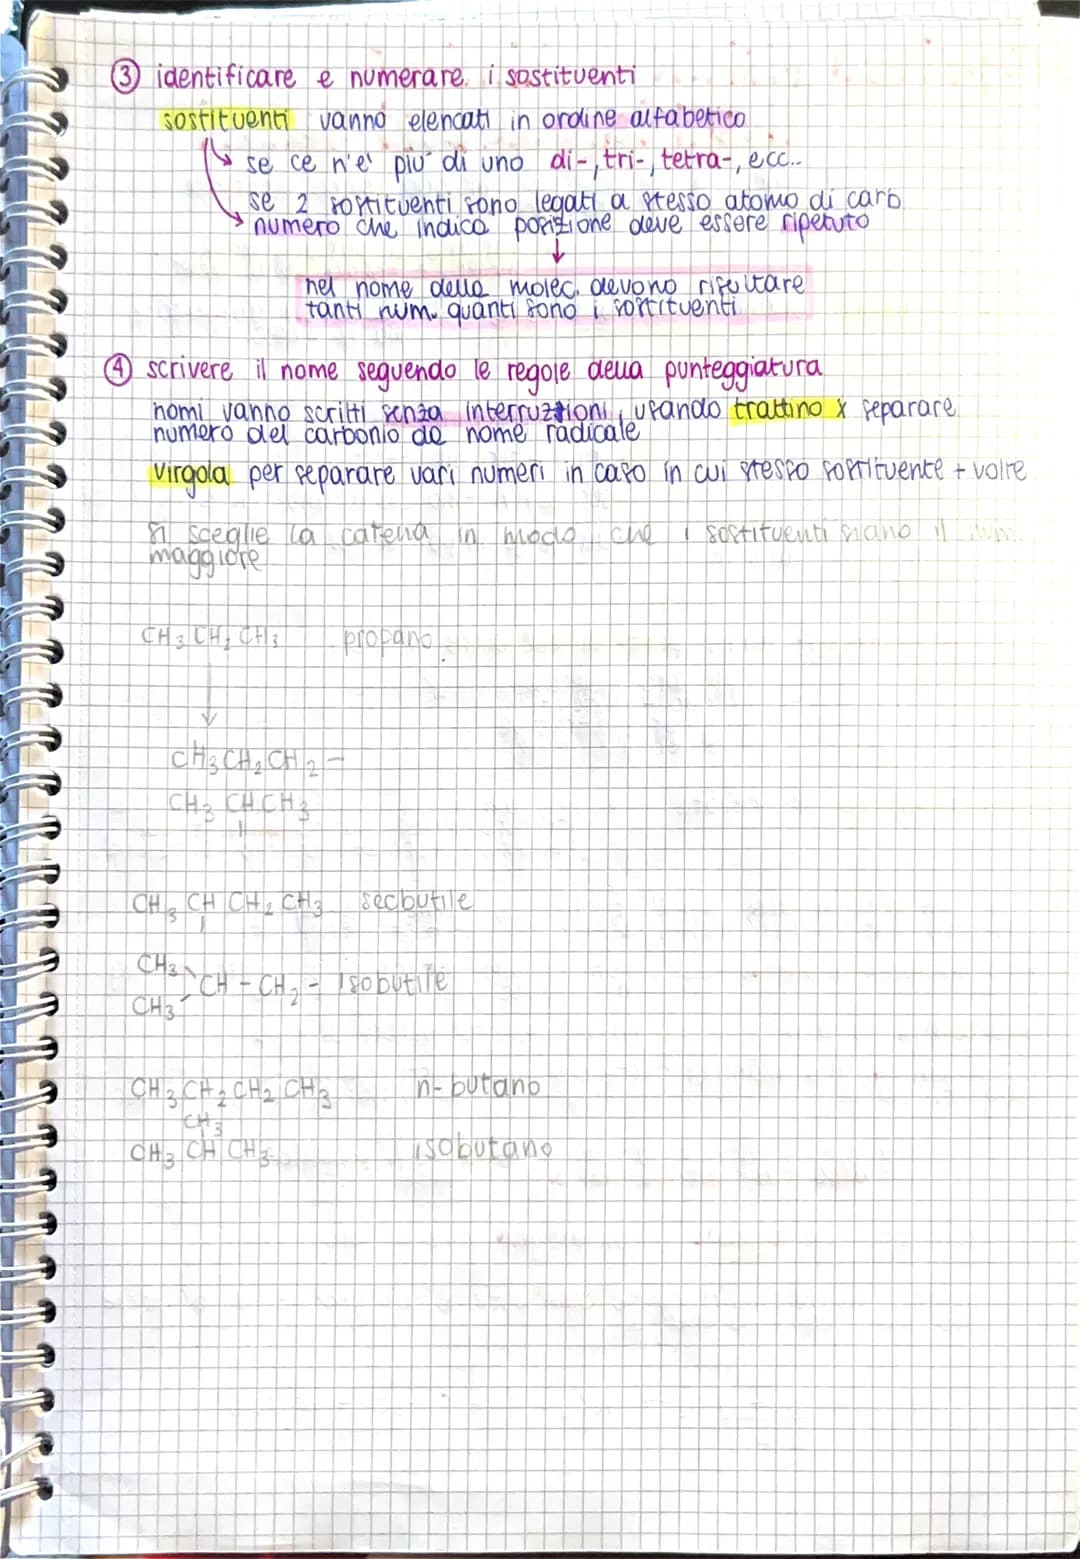 ③ identificare e numerare i sostituenti
sostituenti vanno elencati in ordine alfabetico
se ce n'e' piu' di uno di-, tri-, tetra-, ecc..
se 2 sostituenti sono legati a stesso atomo di carb
numero che indica posizione deve essere ripetuto
nel nome della molec. devono risultare
tanti num. quanti sono i sostituenti
④ scrivere il nome seguendo le regole della punteggiatura
nomi vanno scritti senza interruzioni, usando trattino x separare
numero del carbonio da nome radicale
virgola per separare vari numeri in caso in cui stesso sostituente + volte
si sceglie la catena in modo che i sostituenti siano il
maggiore
CH₃ CH₂ CH₃ propano
CH₃ CH₂ CH₂ -
CH₃ CH CH₃
CH₃ CH CH₂ CH₃ secbutile
CH₃
CH - CH₂ - isobutile
CH₃
CH₃ CH₂ CH₂ CH₃ n-butano
CH₃
CH₃ CH CH₃ isobutano